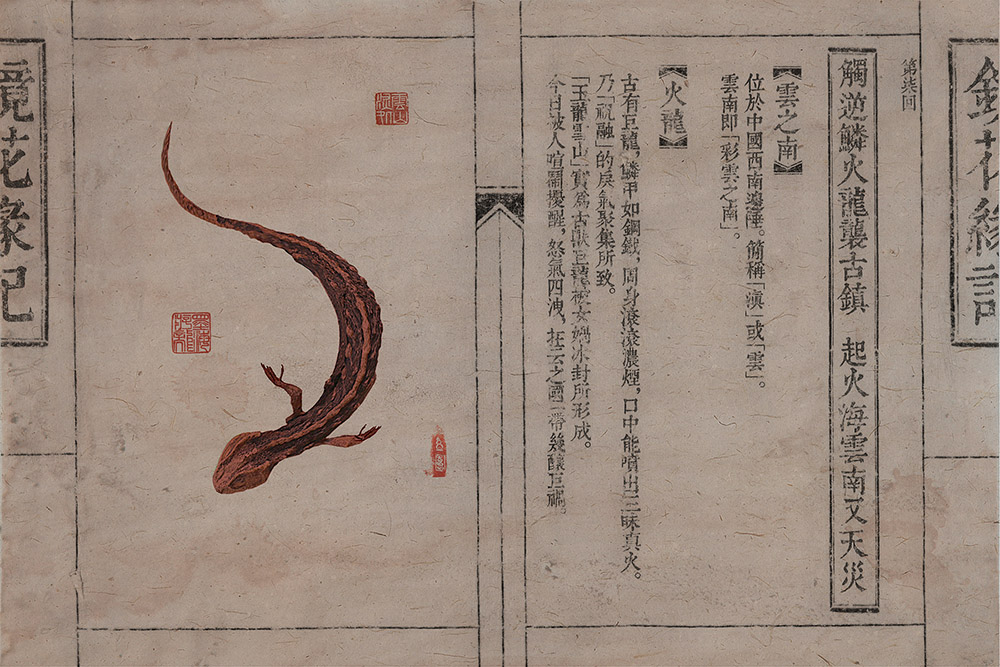 鏡花緣記
第柒回
觸逆鱗火龍襲古鎮　起火海雲南又天災
【雲之南】
位於中國西南邊陲。簡稱「滇」或「雲」。
雲南即「彩雲之南」。
【火龍】
古有巨龍，鱗甲如鋼鐵，周身滾滾濃煙，口中能噴出三昧真火。
乃「祝融」的戾氣聚集所致。
「玉龍雲山」實爲古獸巨龍被女媧冰封所形成。
今日被人喧鬧擾醒，怒氣四洩，在云之國一帶幾釀巨禍。
鏡花緣記